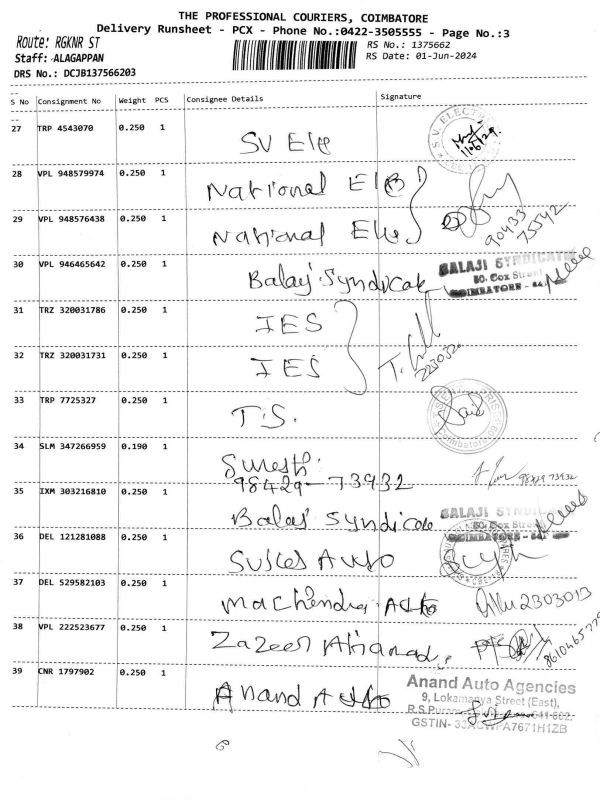 THE PROFESSIONAL COURIERS, COIMBATORE
Delivery Runsheet - PCX - Phone No.:0422-3505555 - Page No.:3
Route: RGKNR ST RS No.: 1375662
Staff: ALAGAPPAN RS Date: 01-Jun-2024
DRS No.: DCJB137566203
S No Consignment No Weight PCS Consignee Details Signature
27 TRP 4543070 0.250 1 SV Ele
28 VPL 948579974 0.250 1 National Ele
29 VPL 948576438 0.250 1 National Ele 90433
75542
30 VPL 946465642 0.250 1 Balaji Syndicate BALAJI SYNDICATE
80, Cox Street
COIMBATORE - 641
31 TRZ 320031786 0.250 1 IES
32 TRZ 320031731 0.250 1 IES
33 TRP 7725327 0.250 1 T.S.
34 SLM 347266959 0.190 1 Suresh
98429-73932 98429 73932
35 IXM 303216810 0.250 1 Balaji Syndicate BALAJI SYND
80, Cox Street
COIMBATORE - 641
36 DEL 121281088 0.250 1 Auto
37 DEL 529582103 0.250 1 Machendra Auto 2303013
38 VPL 222523677 0.250 1
39 CNR 1797902 0.250 1 Anand Auto Anand Auto Agencies
9, Lokamanya Street (East),
R.S.Puram
GSTIN-